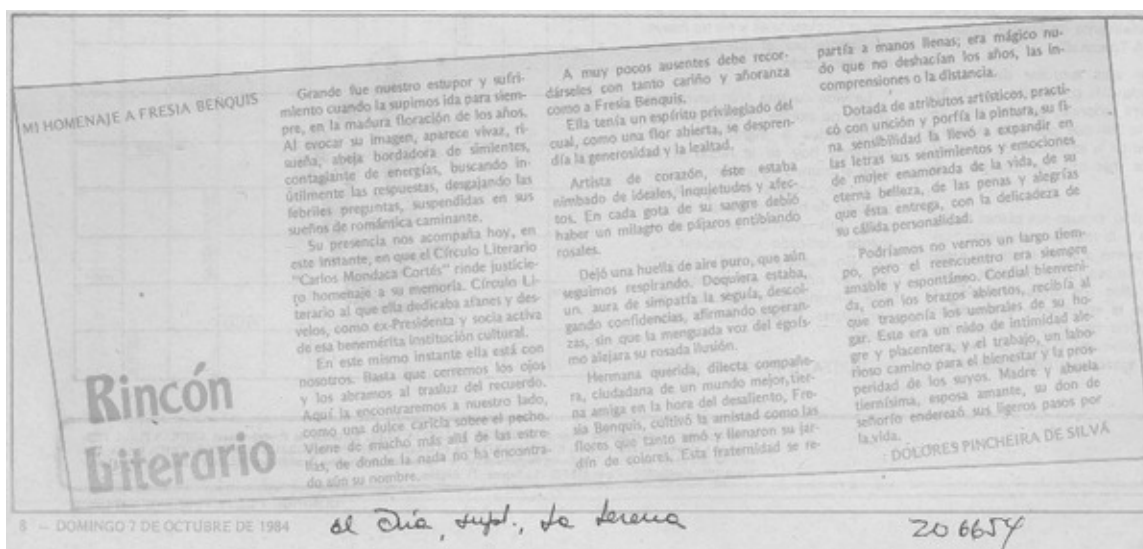 MI HOMENAJE A FRESIA BENQUIS
Grande fue nuestro estupor y sufri-
miento cuando la supimos ida para siem-
pre, en la madura floración de los años.
Al evocar su imagen, aparece vivaz, ri-
sueña, abeja bordadora de simientes,
contagiante de energías, buscando in-
útilmente las respuestas, desgajando las
febriles preguntas, suspendidas en sus
sueños de romántica caminante.
Su presencia nos acompaña hoy, en
este instante, en que el Círculo Literario
"Carlos Mondaca Cortés" rinde justicie-
ro homenaje a su memoria. Círculo Li-
terario al que ella dedicaba afanes y des-
velos, como ex-Presidenta y socia activa
de esa benemérita institución cultural.
En este mismo instante ella está con
nosotros. Basta que cerremos los ojos
y los abramos al trasluz del recuerdo.
Aquí la encontraremos a nuestro lado,
como una dulce caricia sobre el pecho.
Viene de mucho más allá de las estre-
llas, de donde la nada no ha encontra-
do aún su nombre.
A muy pocos ausentes debe recor-
dárseles con tanto cariño y añoranza
como a Fresia Benquis.
Ella tenía un espíritu privilegiado del
cual, como una flor abierta, se despren-
día la generosidad y la lealtad.
Artista de corazón, éste estaba
nimbado de ideales, inquietudes y afec-
tos. En cada gota de su sangre debió
haber un milagro de pájaros entibiando
rosales.
Dejó una huella de aire puro, que aún
seguimos respirando. Doquiera estaba,
un aura de simpatía la seguía, descol-
gando confidencias, afirmando esperan-
zas, sin que la menguada voz del egoís-
mo alejara su rosada ilusión.
Hermana querida, dilecta compañe-
ra, ciudadana de un mundo mejor, tier-
na amiga en la hora del desaliento, Fre-
sia Benquis, cultivó la amistad como las
flores que tanto amó y llenaron su jar-
dín de colores. Esta fraternidad se re-
partía a manos llenas; era mágico nu-
do que no deshacían los años, las in-
comprensiones o la distancia.
Dotada de atributos artísticos, practi-
có con unción y porfía la pintura, su fi-
na sensibilidad la llevó a expandir en
las letras sus sentimientos y emociones
de mujer enamorada de la vida, de su
eterna belleza, de las penas y alegrías
que ésta entrega, con la delicadeza de
su cálida personalidad.
Podríamos no vernos un largo tiem-
po, pero el reencuentro era siempre
amable y espontáneo. Cordial bienveni-
da, con los brazos abiertos, recibía al
que trasponía los umbrales de su ho-
gar. Este era un nido de intimidad ale-
gre y placentera, y el trabajo, un labo-
rioso camino para el bienestar y la pros-
peridad de los suyos. Madre y abuela
tiernísima, esposa amante, su don de
señorío enderezó sus ligeros pasos por
la vida.
DOLORES PINCHEIRA DE SILVA
Rincón
Literario
8 — DOMINGO 7 DE OCTUBRE DE 1984
el Día, supl., La Serena
206654